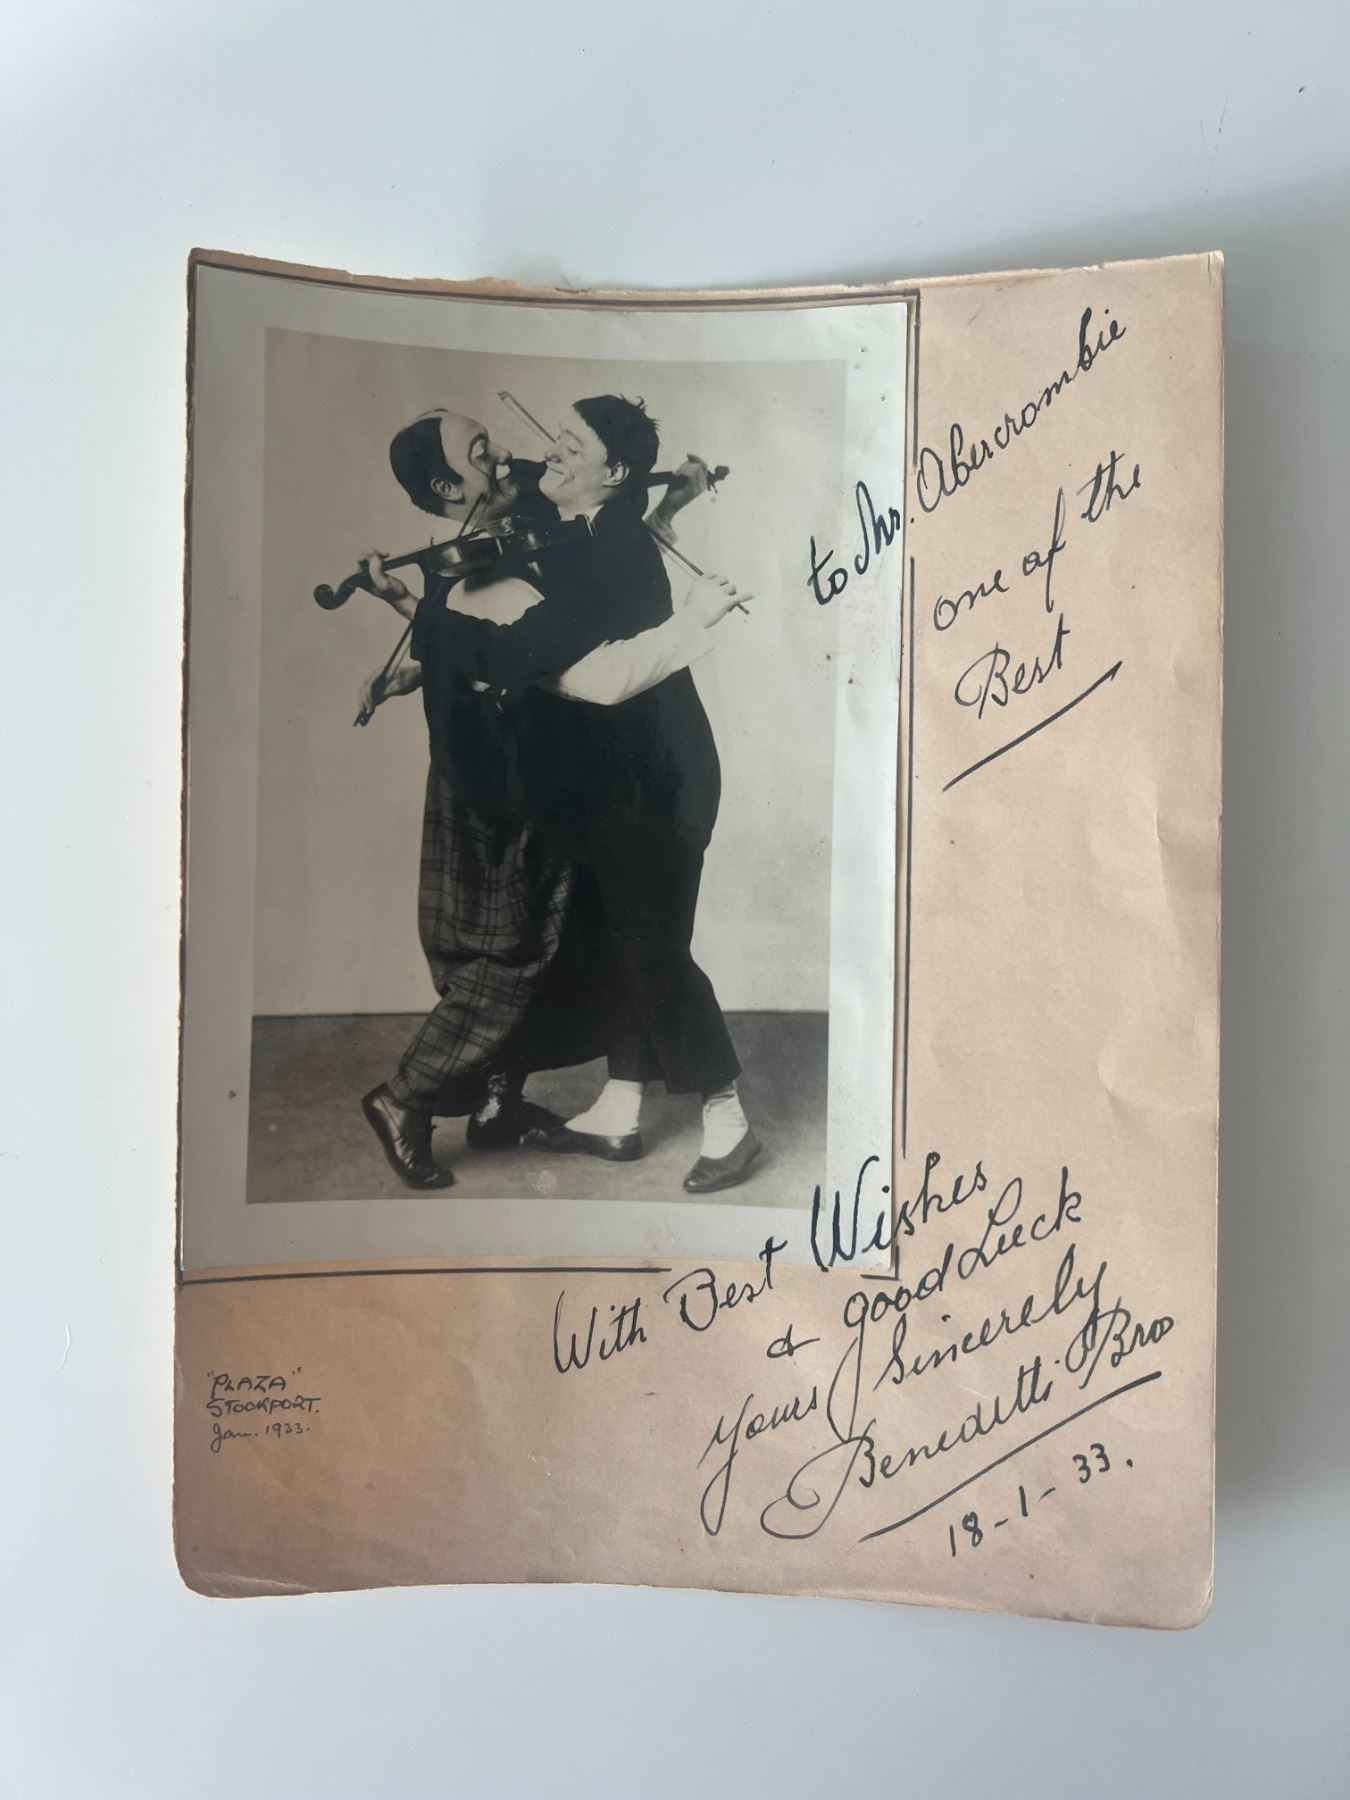 to Mr. Abercrombie
one of the
Best
With Best Wishes
& good Luck
Yours Sincerely
Benedetti Bros
18-1-33.
"PLAZA"
STOCKPORT.
Jan. 1933.